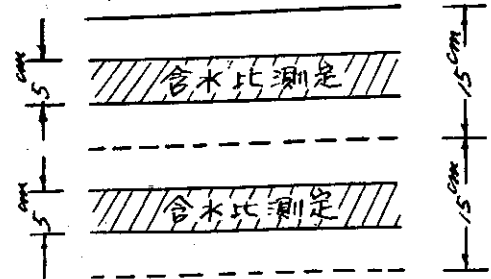 5cm
含水比測定
15cm
5cm
含水比測定
15cm